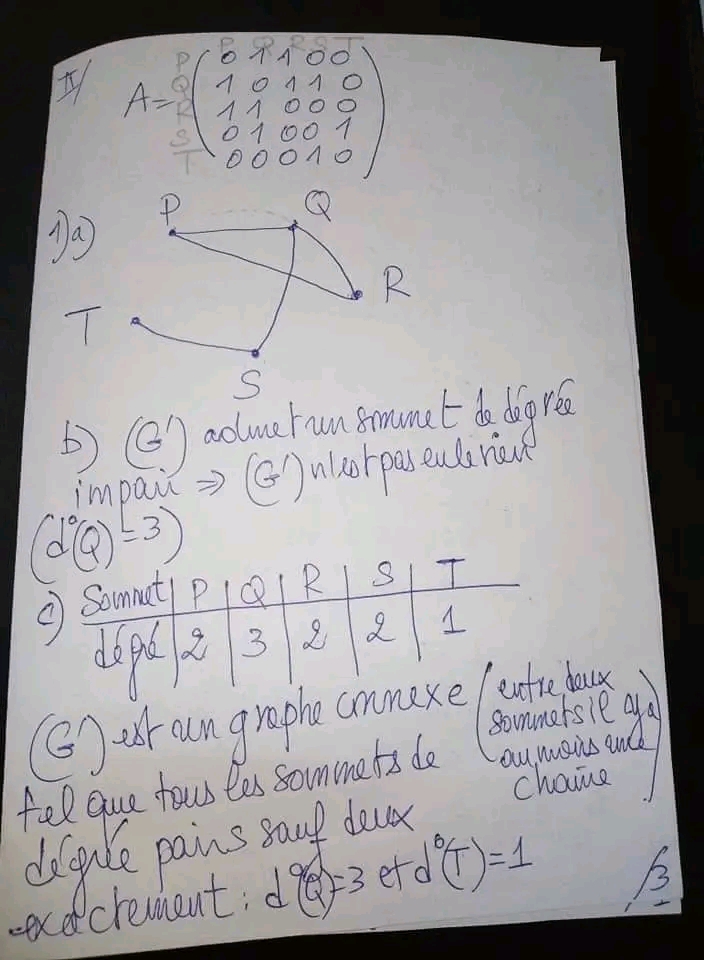 II/
P Q R S T
A=
P 0 1 1 0 0
Q 1 0 1 1 0
R 1 1 0 0 0
S 0 1 0 0 1
T 0 0 0 1 0
1)a)
P Q
R
T
S
b) (G') admet un sommet de dégrée
impair ⇒ (G') n'est pas eulerien
(d°(Q)=3)
c) Sommet P Q R S T
dégré 2 3 2 2 1
(G') est un graphe connexe (entre deux
sommets il y a
au moins une
chaîne)
tel que tous les sommets de
dégrée pairs sauf deux
exactement : d°(Q)=3 et d°(T)=1
/3